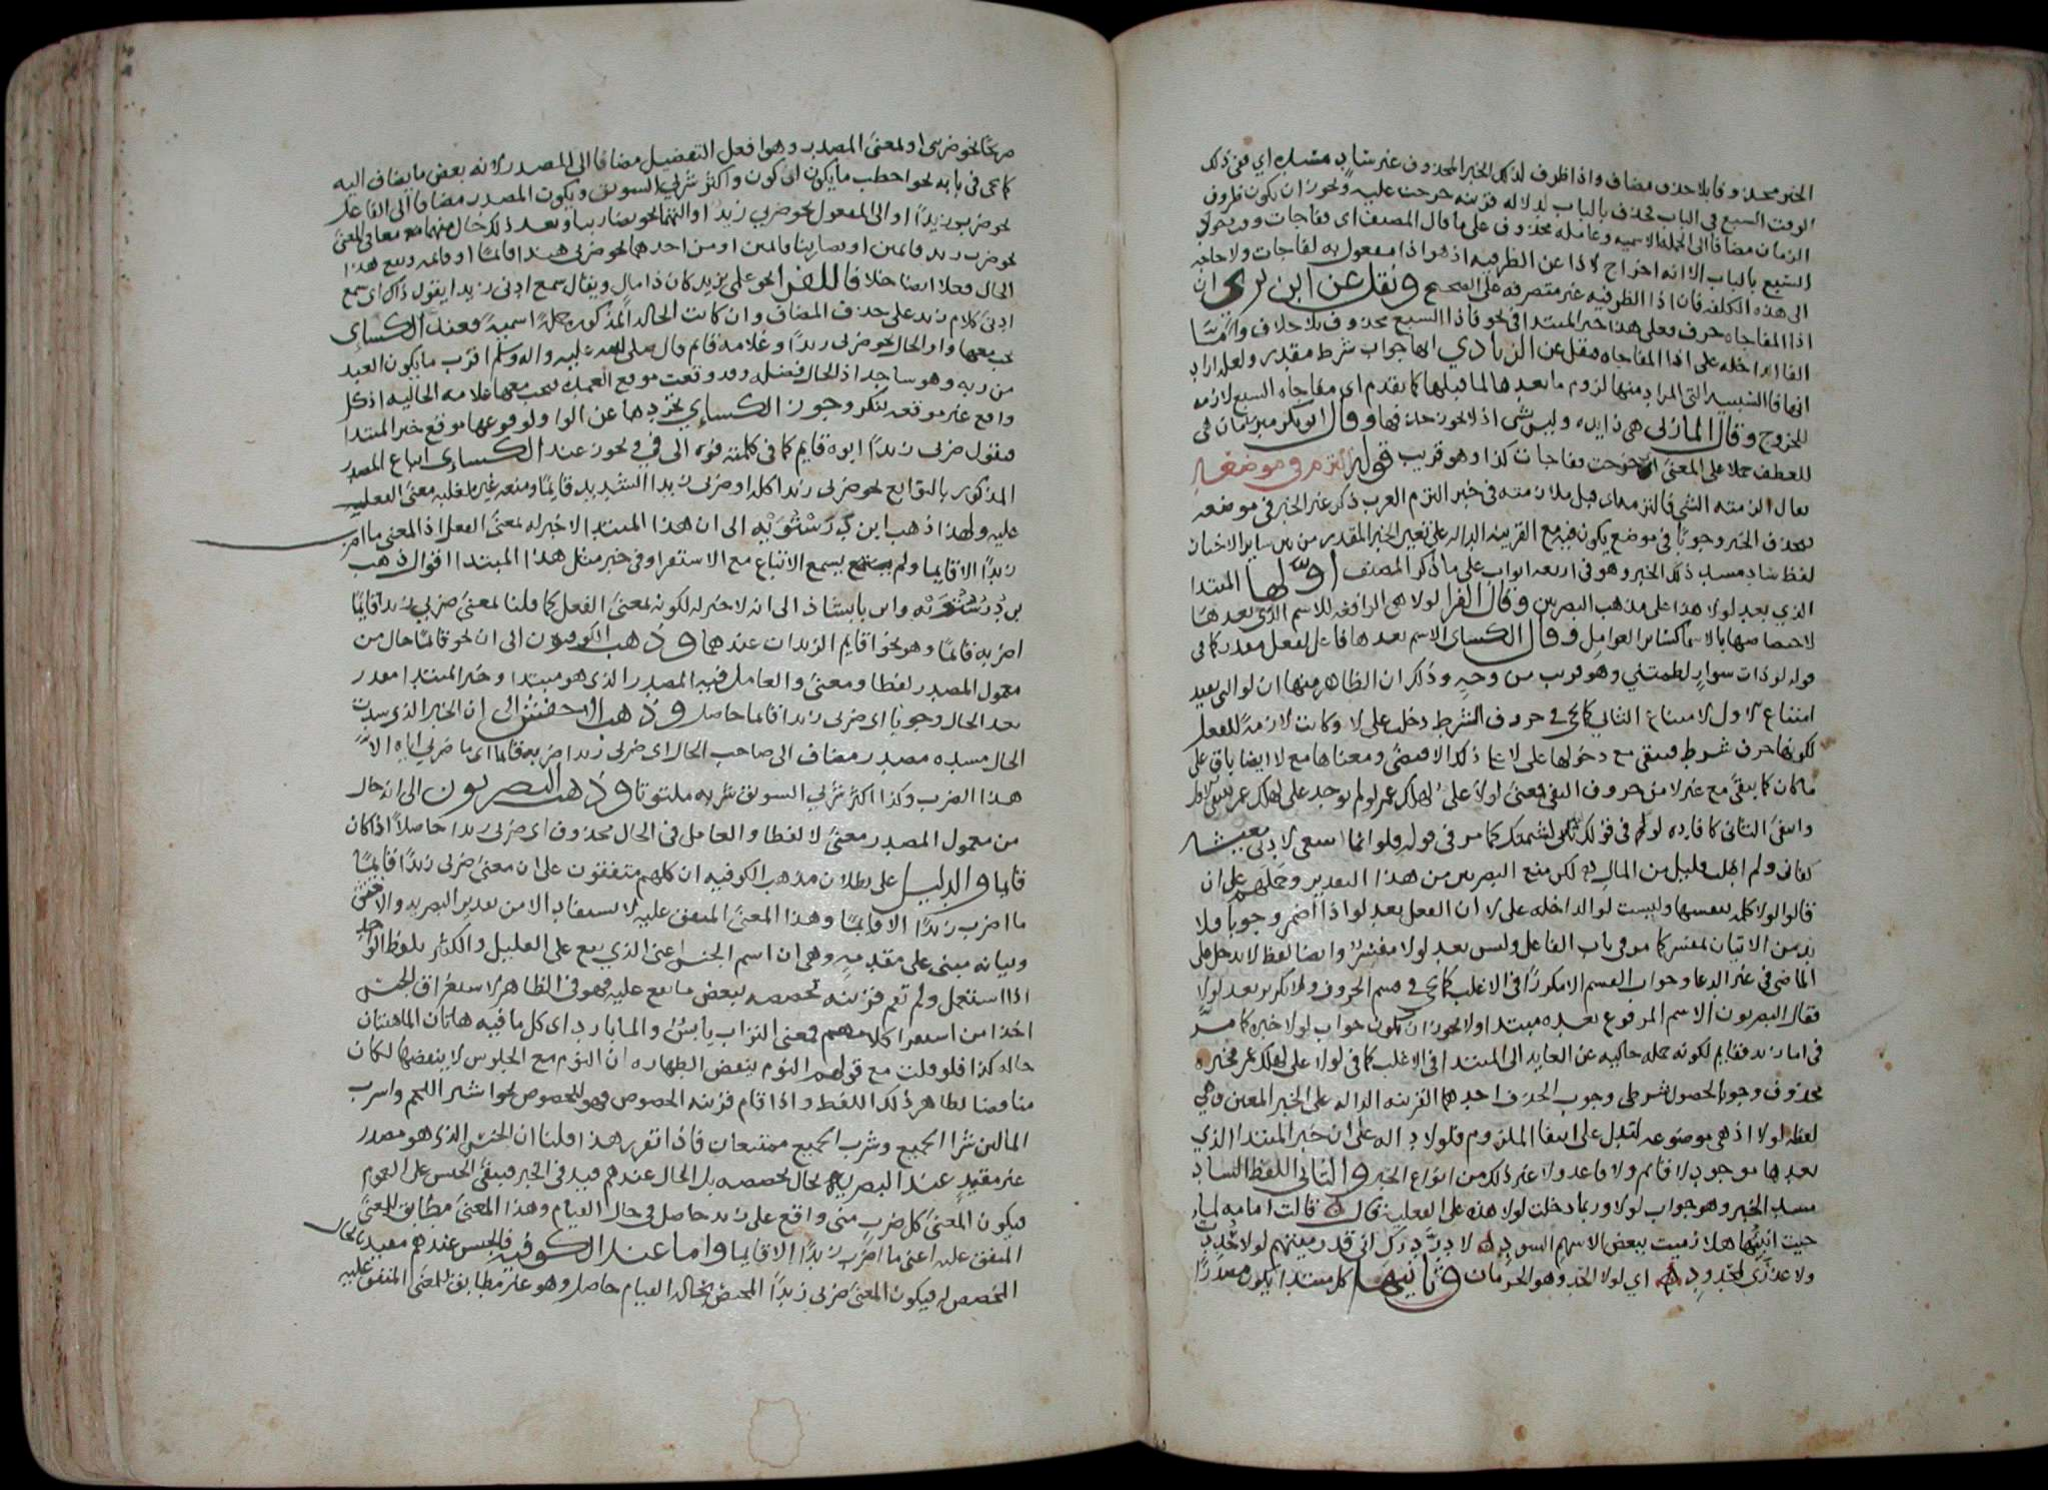 الخبر محذوفا بلا حذف مضاف واذا ظرف لذلك الخبر المحذوف غير ساد مسده اي ففي ذلك
الوقت السبع في الباب فحذف بالباب لدلالة قرينة خرجت عليه ويجوز ان يكون ظرف
الزمان مضافا الى الجملة الاسمية وعامله محذوف على ما قال المصنف اى ففاجات وقت وجود
السبع بالباب الا انه اخراج لاذا عن الظرفية اذ هو اذا مفعول به لفاجات ولا حاجة
الى هذه الكلفة فان اذا الظرفية غير متصرفة على الصحيح ونقل عن ابن بري ان
اذا المفاجاه حرف فعلى هذا خبر المبتدا في نحو فاذا السبع محذوف بلا خلاف واما
الفا الداخله على اذا المفاجاه فنقل عن الزيادي انها جواب شرط مقدر ولعله اراد
انها فا السببيه التي المراد منها لزوم ما بعدها لما قبلها كما تقدم اى مفاجاه السبع لازمه
للخروج وقال المازني هي زايده وليس بشى اذ لا يجوز حذفها وقال ابو بكر مبرمان هي
للعطف حملا على المعنى اى خرجت ففاجات كذا وهو قريب قوله التزم في موضعه
يقال الزمته الشى فالتزمه اى قبل ملازمته في خبر التزم العرب ذكر غير الخبر في موضعه
فحذف الخبر وجوبا في موضع يكون فيه مع القرينة الداله على تعيين الخبر المقدر من بين ساير الاخبار
لفظ ساد مسد ذلك الخبر وهو في اربعة ابواب على ما ذكر المصنف اولها المبتدا
الذي بعد لولا هذا على مذهب البصريين وقال الفرا لولا هي الرافعة للاسم الذي بعدها
لاختصاصها بالاسما كساير العوامل وقال الكساى الاسم بعدها فاعل لفعل مقدر كما في
قوله لو ذات سوار لطمتني وهو قريب من وجه وذلك ان الظاهر منها ان لو التي تفيد
امتناع الاول لامتناع الثاني كما يجي في حروف الشرط دخلت على لا وكانت لازمة للفعل
لكونها حرف شرط فتبقى مع دخولها على لا على ذلك الاقتضى ومعناها مع لا ايضا باق على
ما كان كما يبقى مع غير لا من حروف النفي فمعنى لولا على لهلك عمر لو لم يوجد على لهلك عمر
وانتفى الثاني كافاده لو في قولك لو لم تاتني لشتمتك كما مر في قوله فلو انما اسعى لادنى معيشة
كفاني ولم اطلب قليل من المال لكن منع البصريين من هذا التقدير وحملهم على ان
قالوا لولا كلمه بنفسها وليست لو الداخله على لا ان الفعل بعد لو اذا اضمر وجوبا فلا
بد من الاتيان بمفسر كما مر في باب الفاعل وليس بعد لولا مفسر وايضا لفظ لا لا يدخل على
الماضى في غير الدعا وجواب القسم الا مكررا في الاغلب كما يجي في قسم الحروف ولا تكرير بعد لولا
فقال البصريون الاسم المرفوع بعده مبتدا ولا يجوز ان يكون جواب لولا خبره كما مر
في اما زيد فقايم لكونه جمله خاليه عن العايد الى المبتدا في الاغلب كما في لولا على لهلك عمر فخبره
محذوف وجوبا لحصول شرطى وجوب الحذف احدهما القرينة الداله على الخبر المعين وهي
لفظة لولا اذ هي موضوعه لتدل على انتفا الملزوم فلولا داله على ان خبر المبتدا الذي
بعدها موجود لا قايم ولا قاعد ولا غير ذلك من انواع الخبر والثاني اللفظ الساد
مسد الخبر وهو جواب لولا وربما دخلت لولا هذه على الفعلية قال قالت امامة لما
جيت ازائرها هلا رميت ببعض الاسهم السود لا در درك اني قد رميتهم لولا حددت
ولا عذرى لمحدود اي لولا الحد وهو الحرمان وثانيها كل مبتدا يكون مصدرا
صريحا نحو ضربى او بمعنى المصدر وهو افعل التفضيل مضافا الى المصدر لانه بعض ما يضاف اليه
كما يجي في بابه نحو اخطب ما يكون اي كون واكثر شربي السويق ويكون المصدر مضافا الى الفاعل
نحو ضربى زيدا او الى المفعول نحو ضربي زيد او اليهما نحو تضاربنا وبعد ذلك حال منهما مع معا في المعنى
نحو ضربى زيد قايمين او تضاربنا قايمين او من احدهما نحو ضربى هندا قايما او قايمه وتقع هذا
الحال فعلا ايضا خلافا للفرا نحو علمى بزيد كان ذا مال ويقال سمع اذنى زيدا يقول ذاك اى سمع
اذنى كلام زيد على حذف المضاف وان كانت الحال المذكوره جملة اسمية فعند الكساى
يجب معها واو الحال نحو ضربى زيدا وغلامه قايم قال صلى الله عليه واله وسلم اقرب ما يكون العبد
من ربه وهو ساجد اذ الحال فضله وقد وقعت موقع العمده فيجب معها علامة الحالية اذ كل
واقع غير موقعه ينكر وجوز الكساي تجردها عن الواو لوقوعها موقع خبر المبتدا
فنقول ضربى زيدا ابوه قايم كما في كلمته فوه الى في ويجوز عند الكساى اتباع المصدر
المذكور بالتوابع نحو ضربى زيدا كله او ضربى زيدا الشديد قايما ومنعه غيره لغلبة معنى الفعل
عليه ولهذا ذهب ابن درستويه الى ان هذا المبتدا لا خبر له لمعنى الفعل اذ المعنى ما اضرب
زيدا الا قايما ولم يسمع الاتباع مع الاستقرا وفي خبر مثل هذا المبتدا اقوال ذهب
بن درستويه وابن بابشاذ الى انه لا خبر له لكونه بمعنى الفعل كما قلنا فمعنى ضربي زيدا قايما
اضربه قايما وهو نحو اقايم الزيدان عندهما وذهب الكوفيون الى ان نحو قايما حال من
معمول المصدر لفظا ومعنى والعامل فيه المصدر الذى هو مبتدا وخبر المبتدا مقدر
بعد الحال وجوبا اى ضربى زيدا قايما حاصل وذهب الاخفش الى ان الخبر الذى سدت
الحال مسده مصدر مضاف الى صاحب الحال اى ضربى زيدا ضربه قايما اى ما ضربي اياه الا
هذا الضرب وكذا اكثر شربي السويق شربه ملتوتا وذهب البصريون الى انه حال
من معمول المصدر معنى لا لفظا والعامل في الحال محذوف اى ضربى زيدا حاصل اذا كان
قايما والدليل على بطلان مذهب الكوفيه ان كلهم متفقون على ان معنى ضربى زيدا قايما
ما اضرب زيدا الا قايما وهذا المعنى المتفق عليه لا يستفاد الا من تقدير البصريه والاخفش
وبيانه مبنى على مقدمه وهي ان اسم الجنس اعنى الذي يقع على القليل والكثير بلفظ الواحد
اذا استعمل ولم تقم قرينة تخصصه ببعض ما يقع عليه فهو في الظاهر لاستغراق الجنس
اخذا من استقرا كلامهم فمعنى التراب يابس والما بارد اى كل ما فيه هاتان الماهيتان
حاله كذا فلو قلت مع قولهم النوم ينقض الطهاره ان النوم مع الجلوس لا ينقضها لكان
مناقضا لظاهر ذلك اللفظ واذا قام قرينة الخصوص فهو للخصوص نحو اشتر اللحم واشرب
الما لان شرا الجميع وشرب الجميع ممتنعان فاذا تقرر هذا قلنا ان الجنس الذى هو مصدر
غير مقيد عند البصريه بحال تخصصه بل الحال عندهم قيد في الخبر فيبقى الجنس على العموم
فيكون المعنى كل ضرب منى واقع على زيد حاصل في حال القيام وهذا المعنى مطابق للمعنى
المتفق عليه اعنى ما اضرب زيدا الا قايما واما عند الكوفيه فالجنس عندهم مقيد بالحال
المخصص له فيكون المعنى ضربى زيدا المختص بحال القيام حاصل وهو غير مطابق للمعنى المتفق عليه